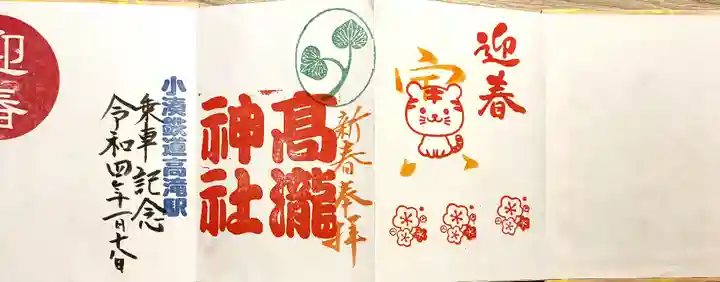 迎春
寅
新春奉拝
髙瀧
神社
小湊鉄道高滝駅
乗車記念
令和四年一月七日
迎春